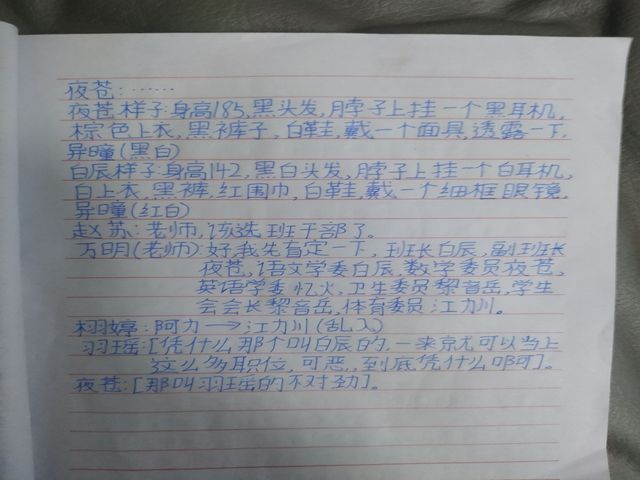 夜苍:……
夜苍样子:身高185,黑头发,脖子上挂一个黑耳机,
棕色上衣,黑裤子,白鞋,戴一个面具,透露一下,
异瞳(黑白)
白辰样子:身高142,黑白头发,脖子上挂一个白耳机,
白上衣,黑裤,红围巾,白鞋,戴一个细框眼镜,
异瞳(红白)
赵苏:老师,该选班干部了。
万明(老师):好,我先肯定一下,班长白辰,副班长
夜苍,语文学委白辰,数学委员夜苍,
英语学委忆火,卫生委员黎音岳,学生
会会长黎音岳,体育委员江力川。
栩婷:阿力→江力川(乱入)
羽瑶:[凭什么那个叫白辰的,一来竟尤可以当上
这么多职位,可恶,到底凭什么啊可]。
夜苍:[那叫羽瑶的不对劲]。